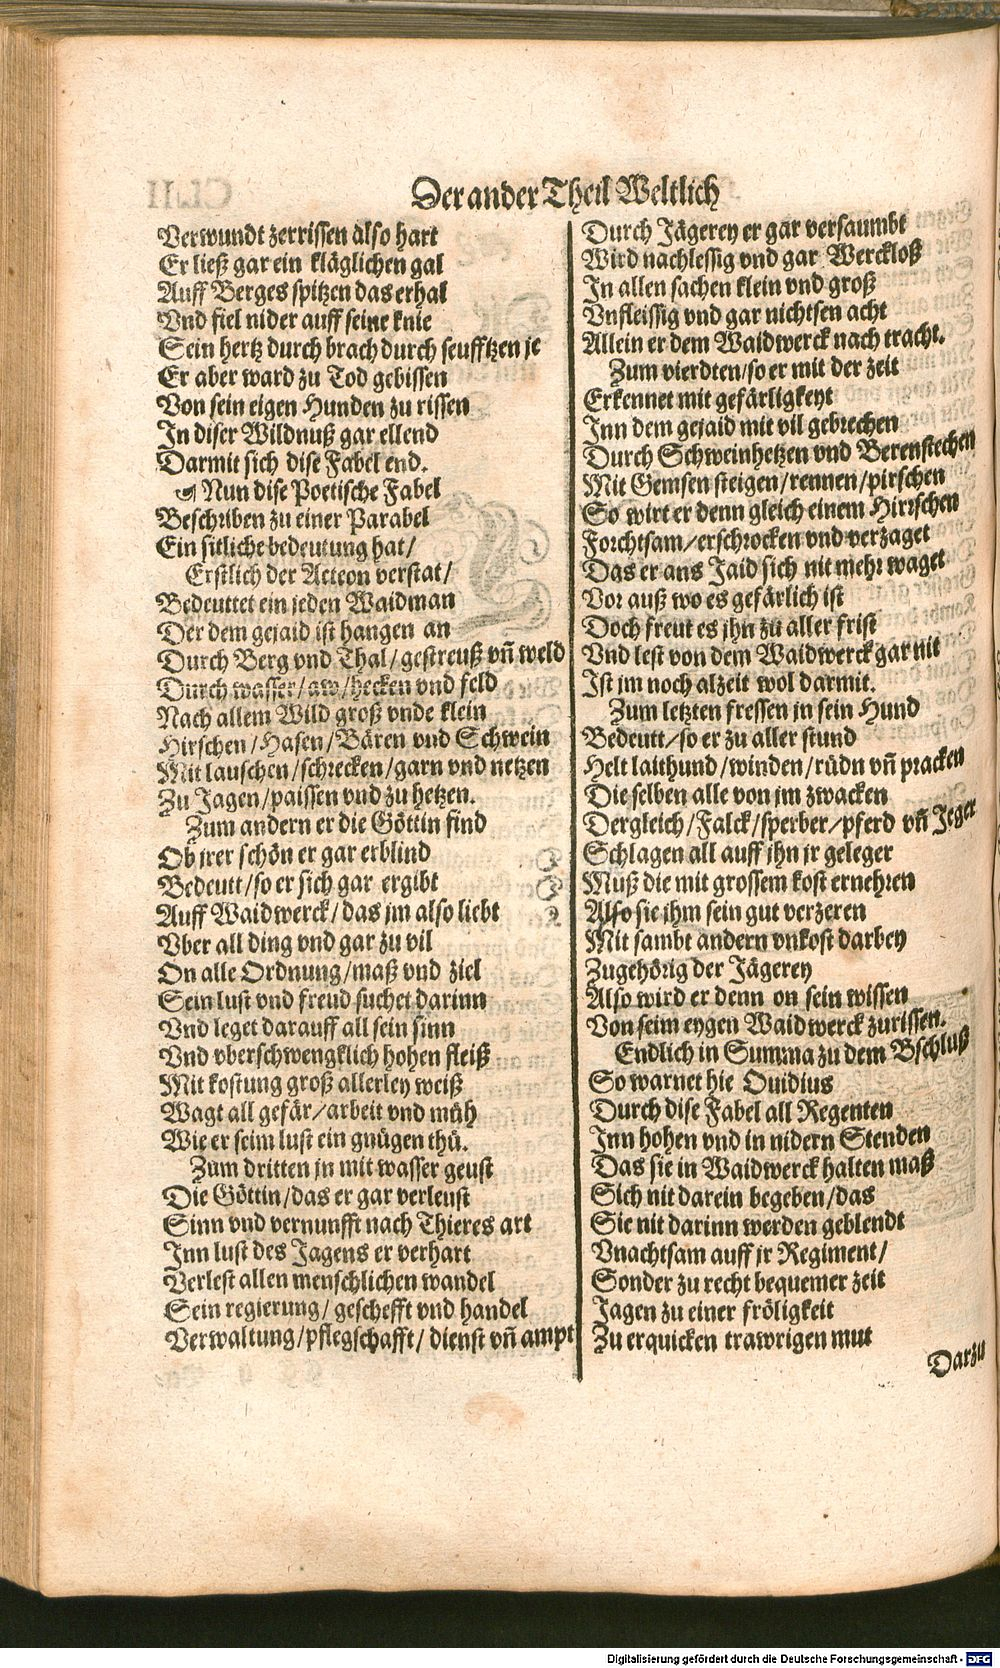 Der ander Theil Weltlich
Verwundt zerrissen also hart
Er ließ gar ein kläglichen gal
Auff Berges spitzen das erhal
Vnd fiel nider auff seine knie
Sein hertz durch brach durch seufftzen je
Er aber ward zu Tod gebissen
Von sein eigen Hunden zu rissen
In diser Wildnuß gar ellend
Darmit sich dise Fabel end.
☙ Nun dise Poetische Fabel
Beschriben zu einer Parabel
Ein sitliche bedeutung hat/
Erstlich der Acteon verstat/
Bedeuttet ein jeden Waidman
Der dem gejaid ist hangen an
Durch Berg vnd Thal/gestreuß vñ weld
Durch wasser/aw/hecken vnd feld
Nach allem Wild groß vnde klein
Hirschen/Hasen/Bären vnd Schwein
Mit lauschen/schrecken/garn vnd netzen
Zu Jagen/paissen vnd zu hetzen.
Zum andern er die Göttin find
Ob jrer schön er gar erblind
Bedeutt/so er sich gar ergibt
Auff Waidwerck/das jm also liebt
Vber all ding vnd gar zu vil
On alle Ordnung/maß vnd ziel
Sein lust vnd freud suchet darinn
Vnd leget darauff all sein sinn
Vnd vberschwengklich hohen fleiß
Mit kostung groß allerley weiß
Wagt all gefär/arbeit vnd müh
Wie er seim lust ein gnügen thü.
Zum dritten jn mit wasser geust
Die Göttin/das er gar verleust
Sinn vnd vernunfft nach Thieres art
Inn lust des Jagens er verhart
Verlest allen menschlichen wandel
Sein regierung/geschefft vnd handel
Verwaltung/pflegschafft/dienst vñ ampt
Durch Jägerey er gar versaumbt
Wird nachlessig vnd gar Werckloß
In allen sachen klein vnd groß
Vnfleissig vnd gar nichtsen acht
Allein er dem Waidwerck nach tracht.
Zum vierdten/so er mit der zeit
Erkennet mit gefärligkeyt
Inn dem gejaid mit vil gebrechen
Durch Schweinhetzen vnd Berenstechen
Mit Gemsen steigen/rennen/pirschen
So wirt er denn gleich einem Hirrschen
Forchtsam/erschrocken vnd verzaget
Das er ans Jaid sich nit mehr waget
Vor auß wo es gefärlich ist
Doch freut es jhn zu aller frist
Vnd lest von dem Waidwerck gar nit
Ist jm noch alzeit wol darmit.
Zum letzten fressen jn sein Hund
Bedeutt/so er zu aller stund
Helt laithund/winden/rüdn vñ pracken
Die selben alle von jm zwacken
Dergleich/Falck/sperber/pferd vñ Jeger
Schlagen all auff jhn jr geleger
Muß die mit grossem kost ernehren
Also sie jhm sein gut verzeren
Mit sambt andern vnkost darbey
Zugehörig der Jägerey
Also wird er denn on sein wissen
Von seim eygen Waidwerck zurissen.
Endlich in Summa zu dem Bschluß
So warnet hie Ouidius
Durch dise Fabel all Regenten
Inn hohen vnd in nidern Stenden
Das sie in Waidwerck halten maß
Sich nit darein begeben/das
Sie nit darinn werden geblendt
Vnachtsam auff jr Regiment/
Sonder zu recht bequemer zeit
Jagen zu einer fröligkeit
Zu erquicken trawrigen mut
Darzu
Digitalisierung gefördert durch die Deutsche Forschungsgemeinschaft - DFG